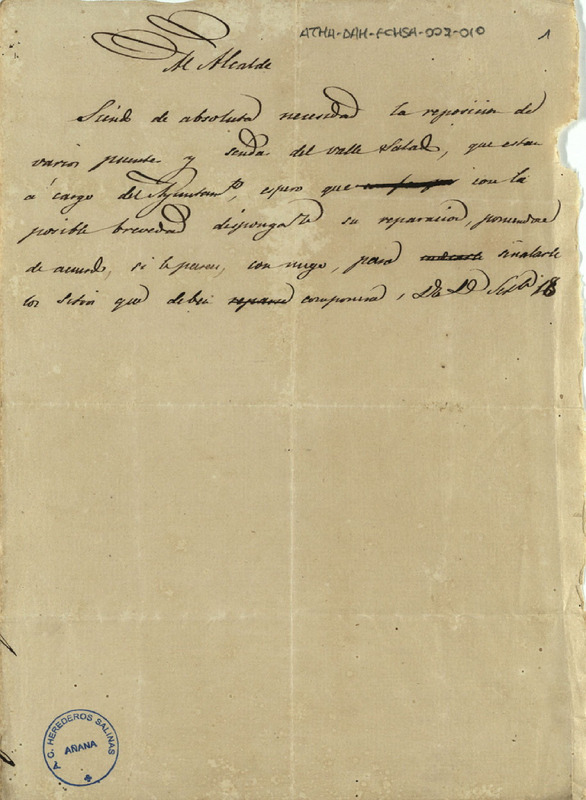 ATHA-DAH-FCHSA-007-010
1
Al Alcalde
Siendo de absoluta necesidad la reposicion de
varios puentes y sendas del valle Salado, que estan
á cargo del Ayuntam.to, espero que con la
posible brevedad disponga su reparacion, poniendose
de acuerdo, si le parece, conmigo, para señalarle
los sitios que deben componerse,
A. C. HEREDEROS SALINAS
AÑANA